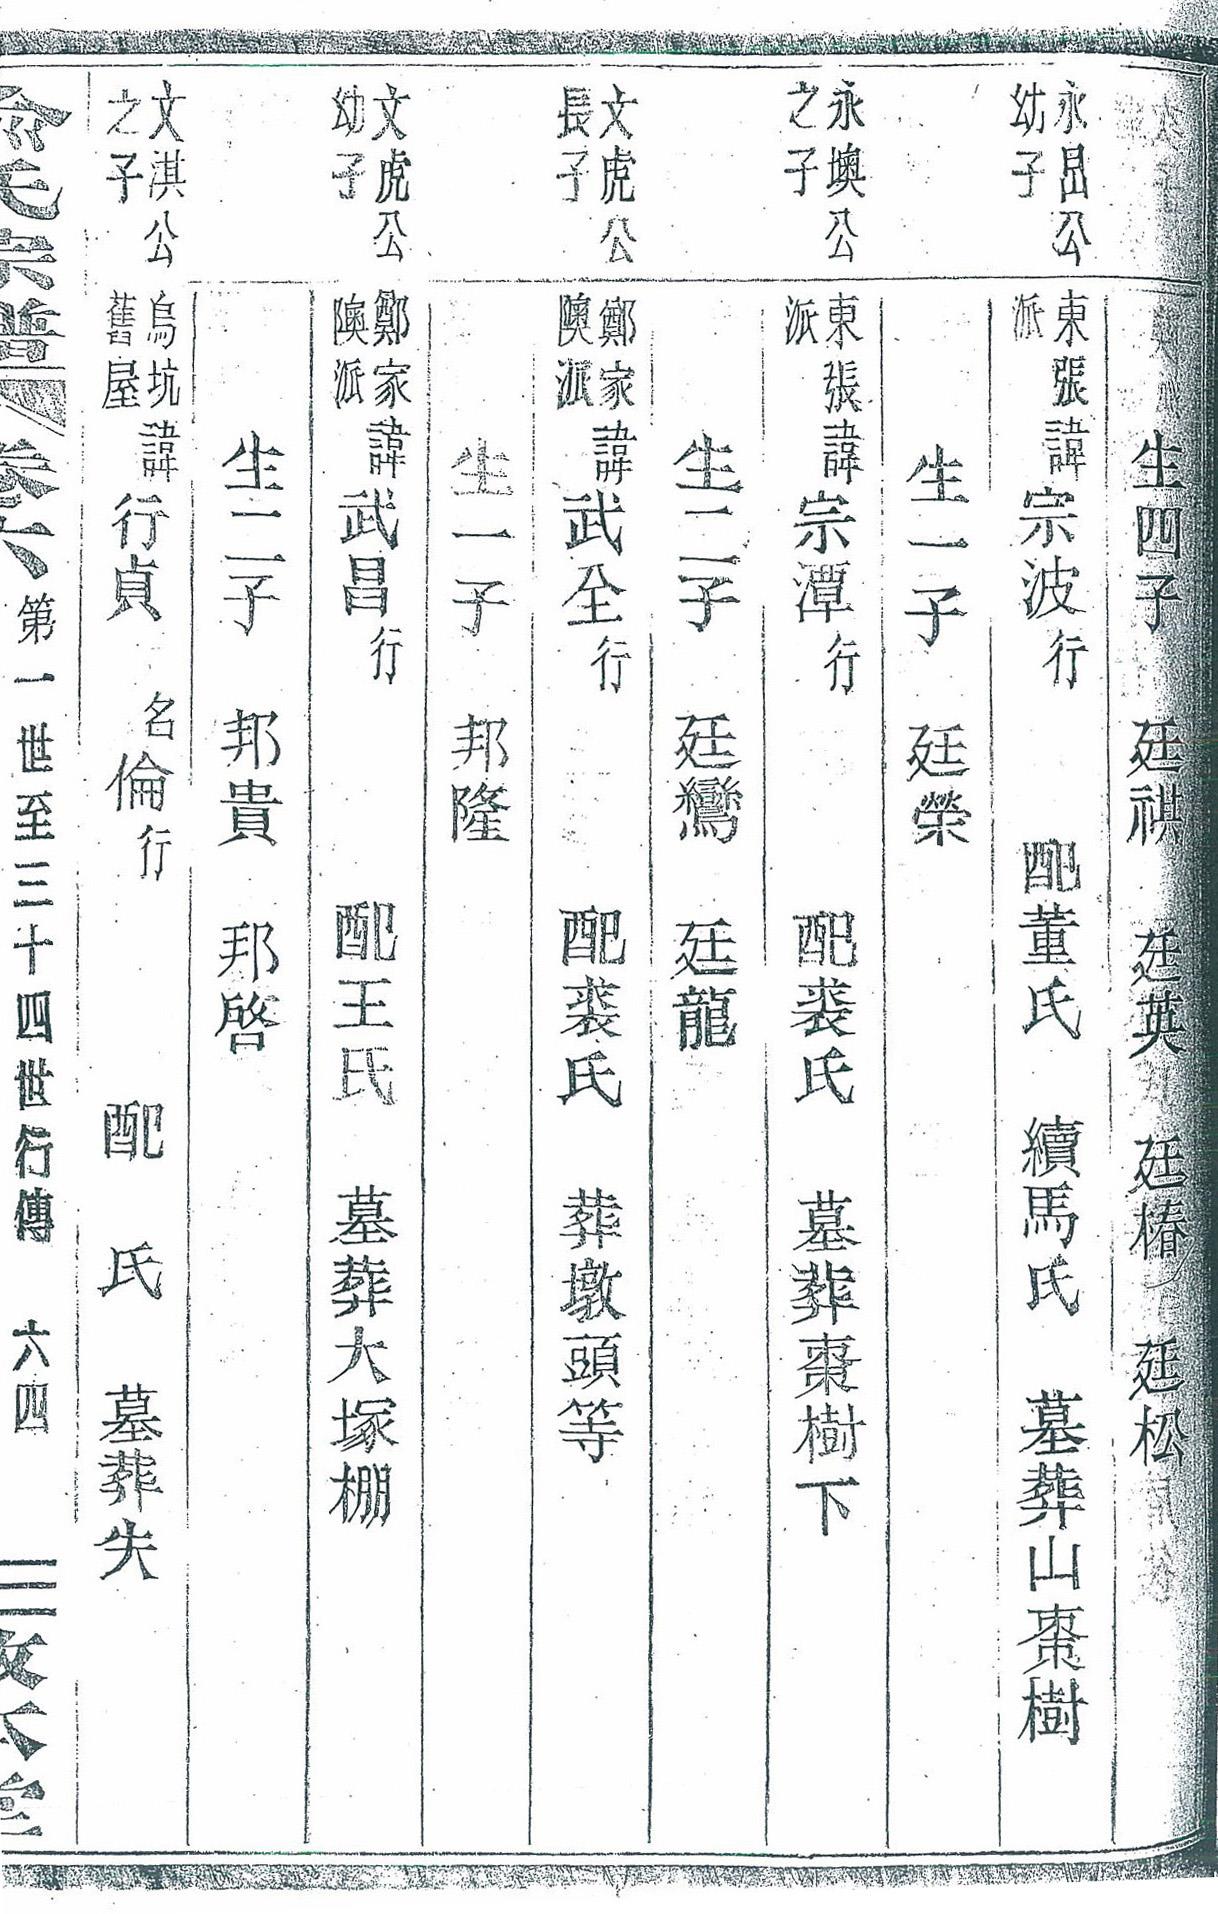 生四子 廷祺 廷英 廷椿 廷松
永昌公
幼子
東張
派
諱宗波行 配董氏 續馬氏 墓葬山棗樹
生一子 廷榮
永墺公
之子
東張
派
諱宗潭行 配裘氏 墓葬棗樹下
生二子 廷鸞 廷龍
文虎公
長子
鄭家
隩派
諱武全行 配裘氏 葬墩頭等
生一子 邦隆
文虎公
幼子
鄭家
隩派
諱武昌行 配王氏 墓葬大塚棚
生二子 邦貴 邦啓
文淇公
之子
烏坑
舊屋
諱行貞 名倫行 配 氏 墓葬失
氏宗譜 卷六 第一世至三十四世行傳 六四